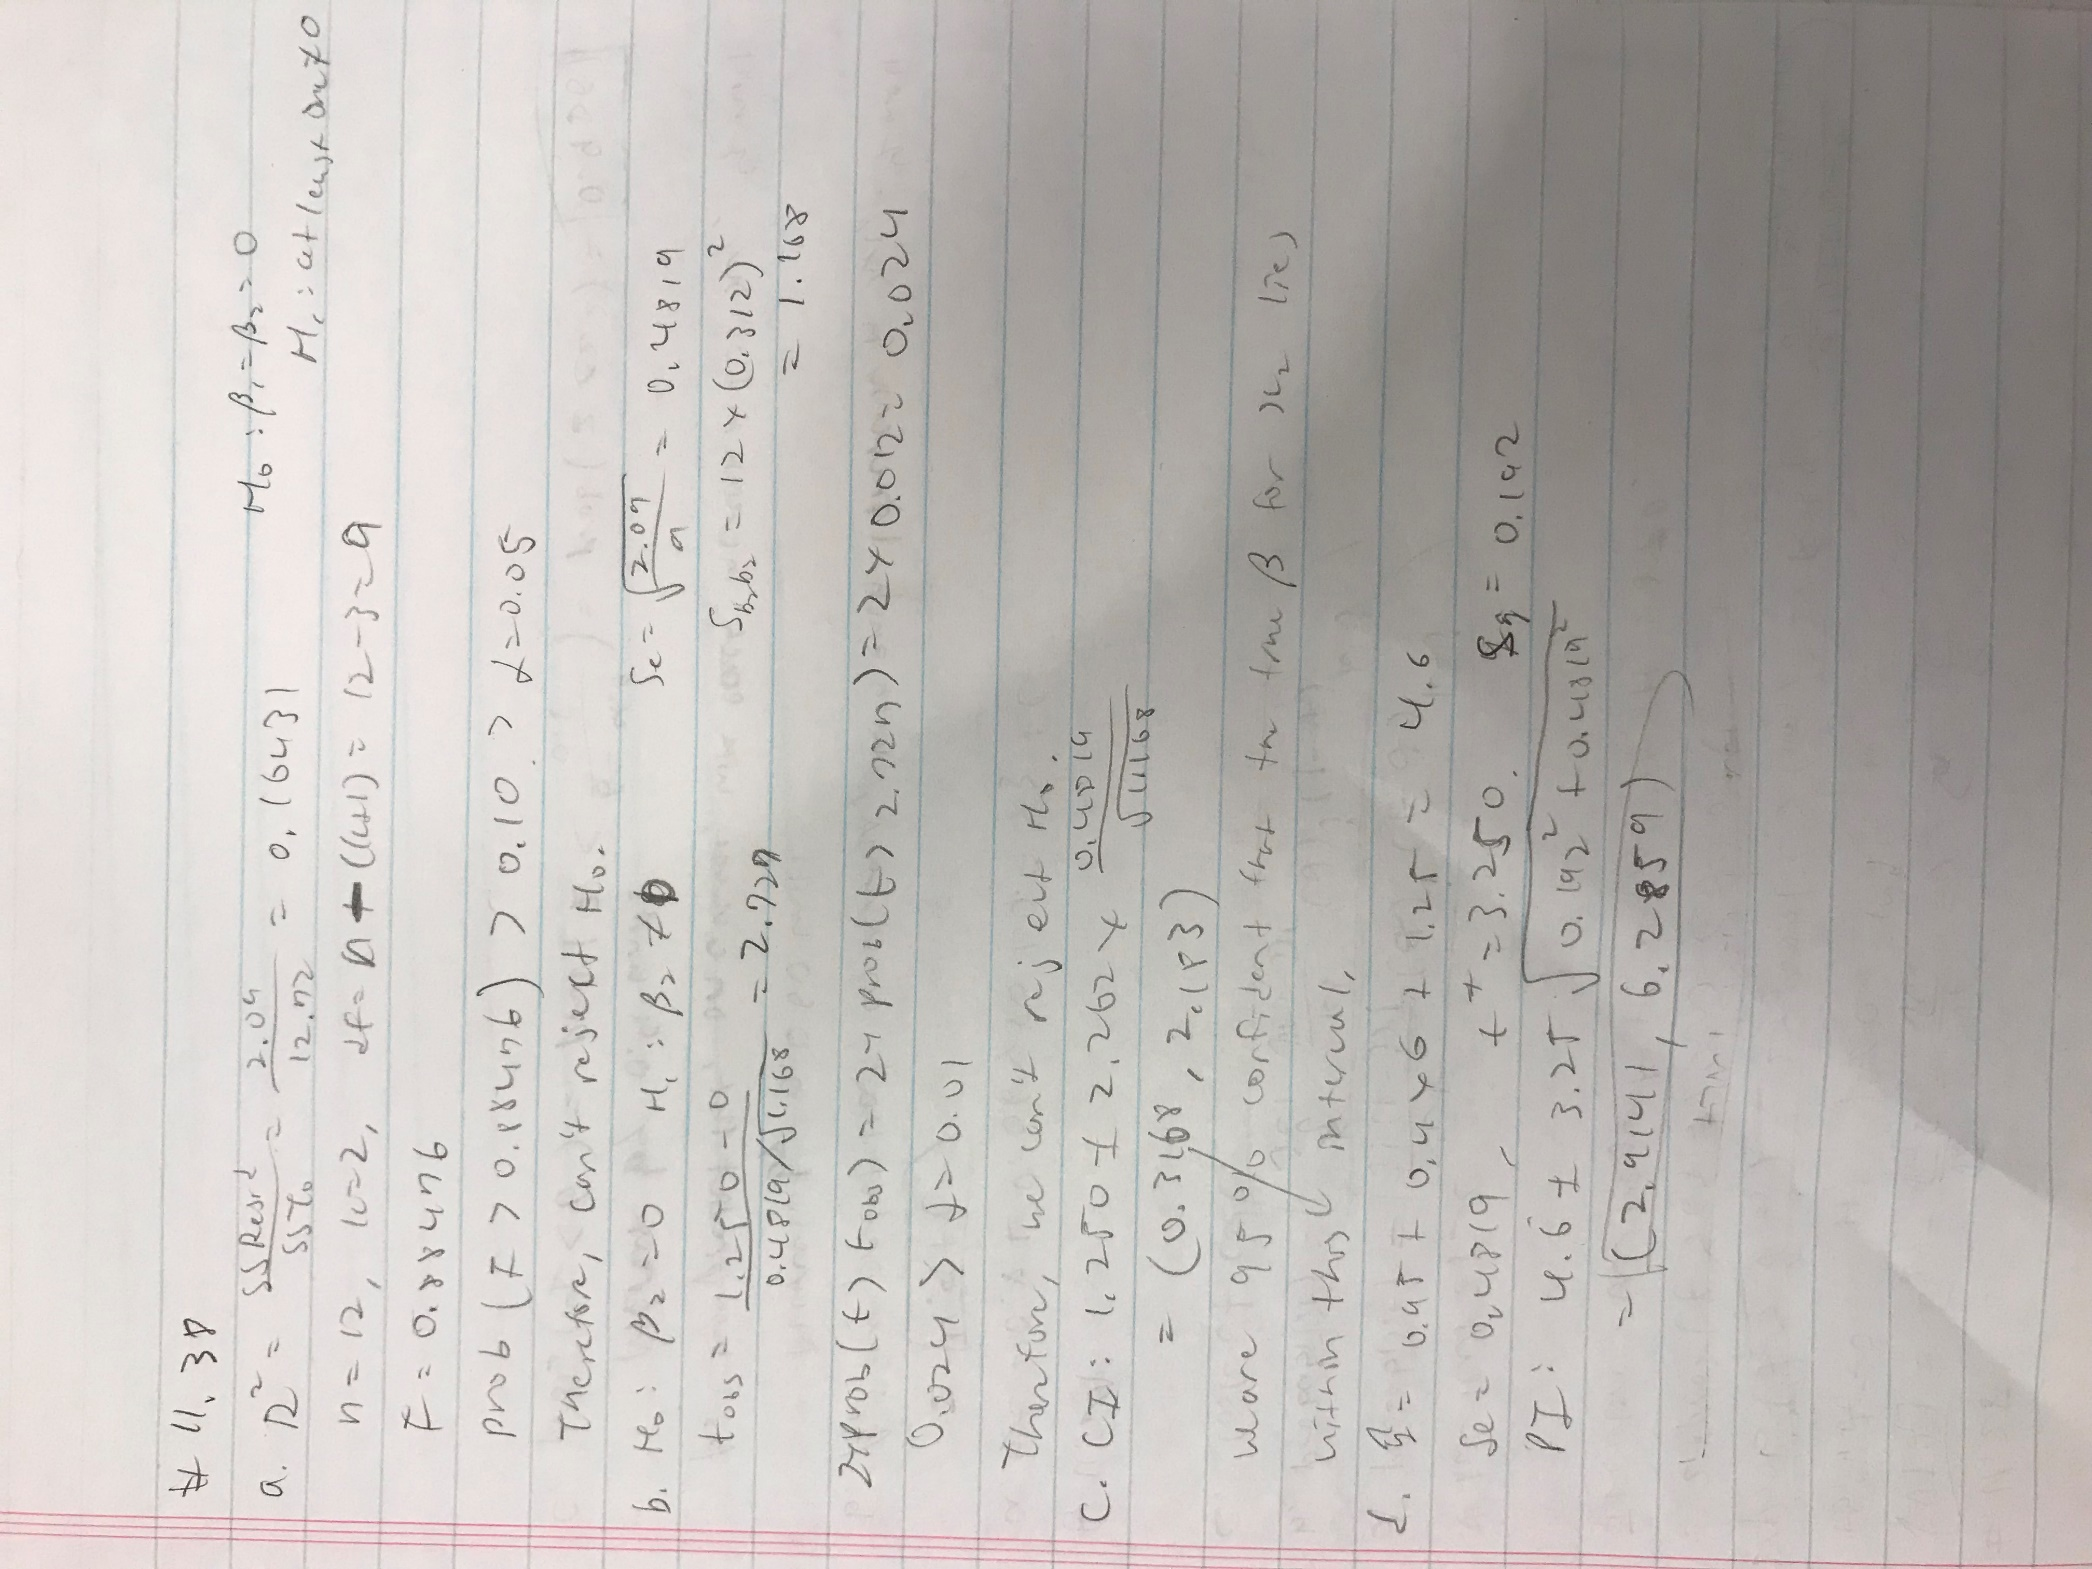 # 11.38
a. R² = SSResid / SSTo = 2.09 / 12.72 = 0.16431 H₀: β₁=β₂=0
H₁: at least one ≠0
n=12, k=2, df= n-(k+1) = 12-3=9
F = 0.88476
prob (F > 0.88476) > 0.10 > α=0.05
Therefore, can't reject H₀.
b. H₀: β₂=0 H₁: β₂≠0 Se = √(2.09/9) = 0.4819
tobs = (1.250-0) / (0.4819/√1.168) = 2.727 Sb₂b₂ = 12×(0.312)²
= 1.168
2×prob(t > tobs) = 2×prob(t > 2.727) = 2×0.012 = 0.024
0.024 > α=0.01
Therefore, we can't reject H₀.
c. CI: 1.250 ± 2.262 × 0.4819/√1.168
= (0.3168, 2.183)
We are 95% confident that the true β for x₂ lies
within this interval.
d. ŷ = 0.95 + 0.4×6 + 1.25 = 4.6
Se = 0.4819, t* = 3.250. Sŷ = 0.192
PI: 4.6 ± 3.25 √(0.192² + 0.4819²)
= (2.9141, 6.2859)